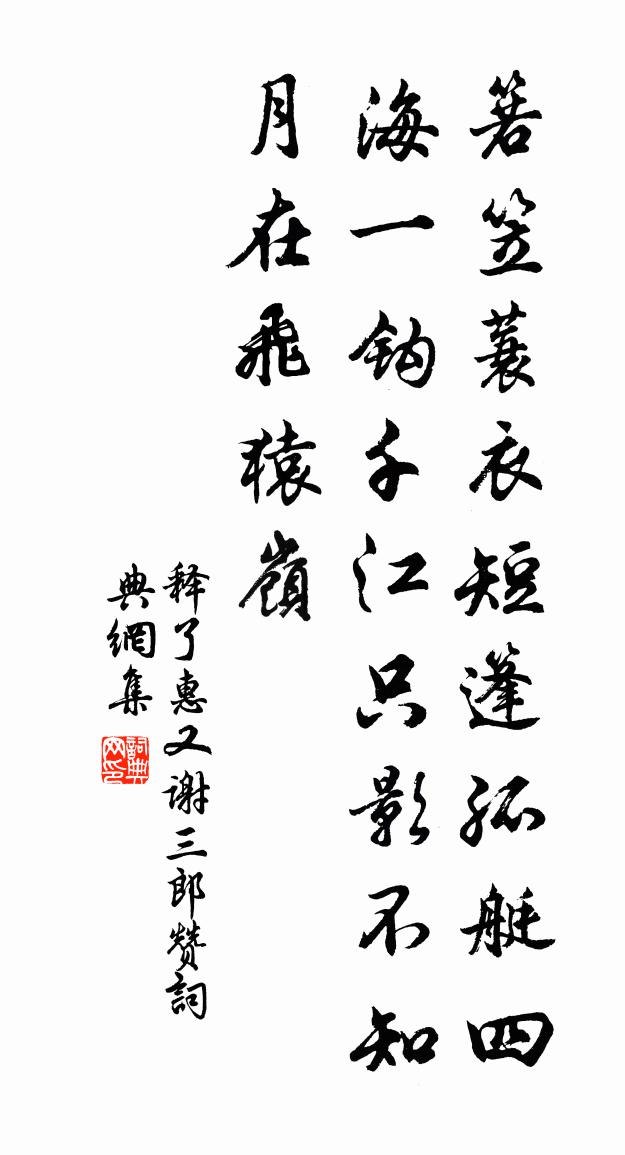 箬笠蓑衣短篷孤艇四
海一鈎千江只影不知
月在飛猿嶺
释了惠又谢三郎赞詞
典網集
詞典
网印